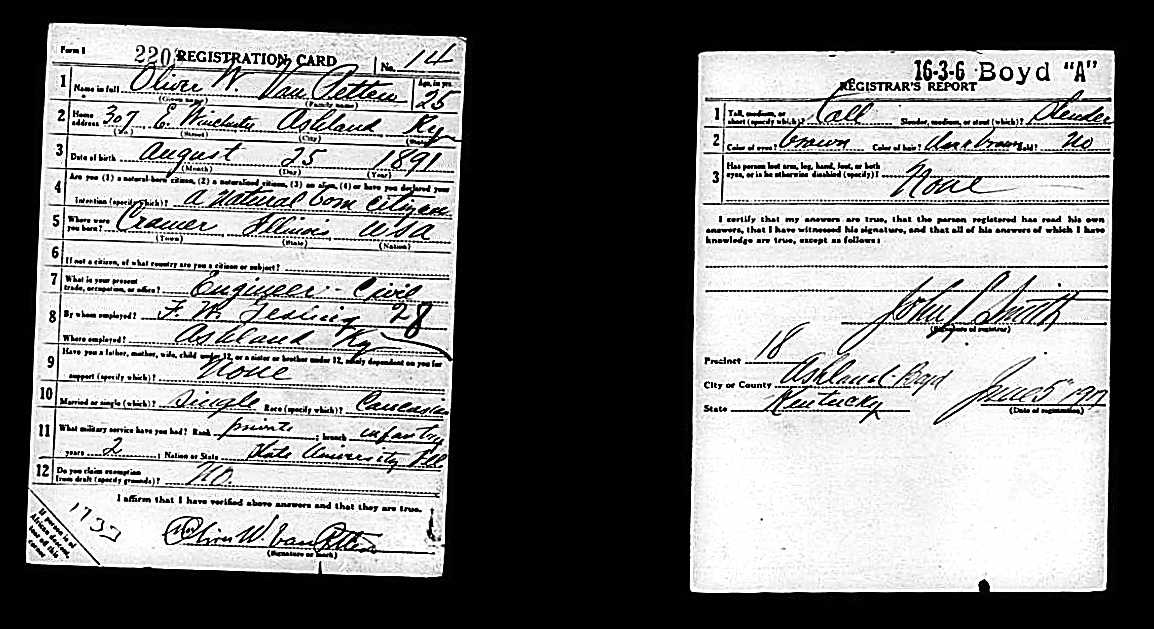 Form 1
220 REGISTRATION CARD No. 14
1 Name in full Oliver W. Van Petten Age, in yrs. 25
(Given name) (Family name)
2 Home address 307 E. Winchester Ashland Ky
(No.) (Street) (City) (State)
3 Date of birth August 25 1891
(Month) (Day) (Year)
4 Are you (1) a natural-born citizen, (2) a naturalized citizen, (3) an alien, (4) or have you declared your
intention (specify which)? a natural born citizen
5 Where were you born? Cramer Illinois USA
(Town) (State) (Nation)
6 If not a citizen, of what country are you a citizen or subject?
7 What is your present trade, occupation, or office? Engineer - Civil 28
8 By whom employed? F. W.
Where employed? Ashland Ky
9 Have you a father, mother, wife, child under 12, or a sister or brother under 12, solely dependent on you for
support (specify which)? None
10 Married or single (which)? Single Race (specify which)? Caucasian
11 What military service have you had? Rank private ; branch infantry
years 2 ; Nation or State State University Ill
12 Do you claim exemption from draft (specify grounds)? No.
I affirm that I have verified above answers and that they are true.
1733
Oliver W. Van Petten
(Signature or mark)
If person is of African descent, tear off this corner
16-3-6 Boyd "A"
REGISTRAR'S REPORT
1 Tall, medium, or short (specify which)? Tall Slender, medium, or stout (which)? Slender
2 Color of eyes? brown Color of hair? dark brown Bald? No
3 Has person lost arm, leg, hand, foot, or both eyes, or is he otherwise disabled (specify)? None
I certify that my answers are true, that the person registered has read his own
answers, that I have witnessed his signature, and that all of his answers of which I have
knowledge are true, except as follows:
John J. Smith
(Signature of registrar)
Precinct 18
City or County Ashland - Boyd
State Kentucky June 5" 1917
(Date of registration)